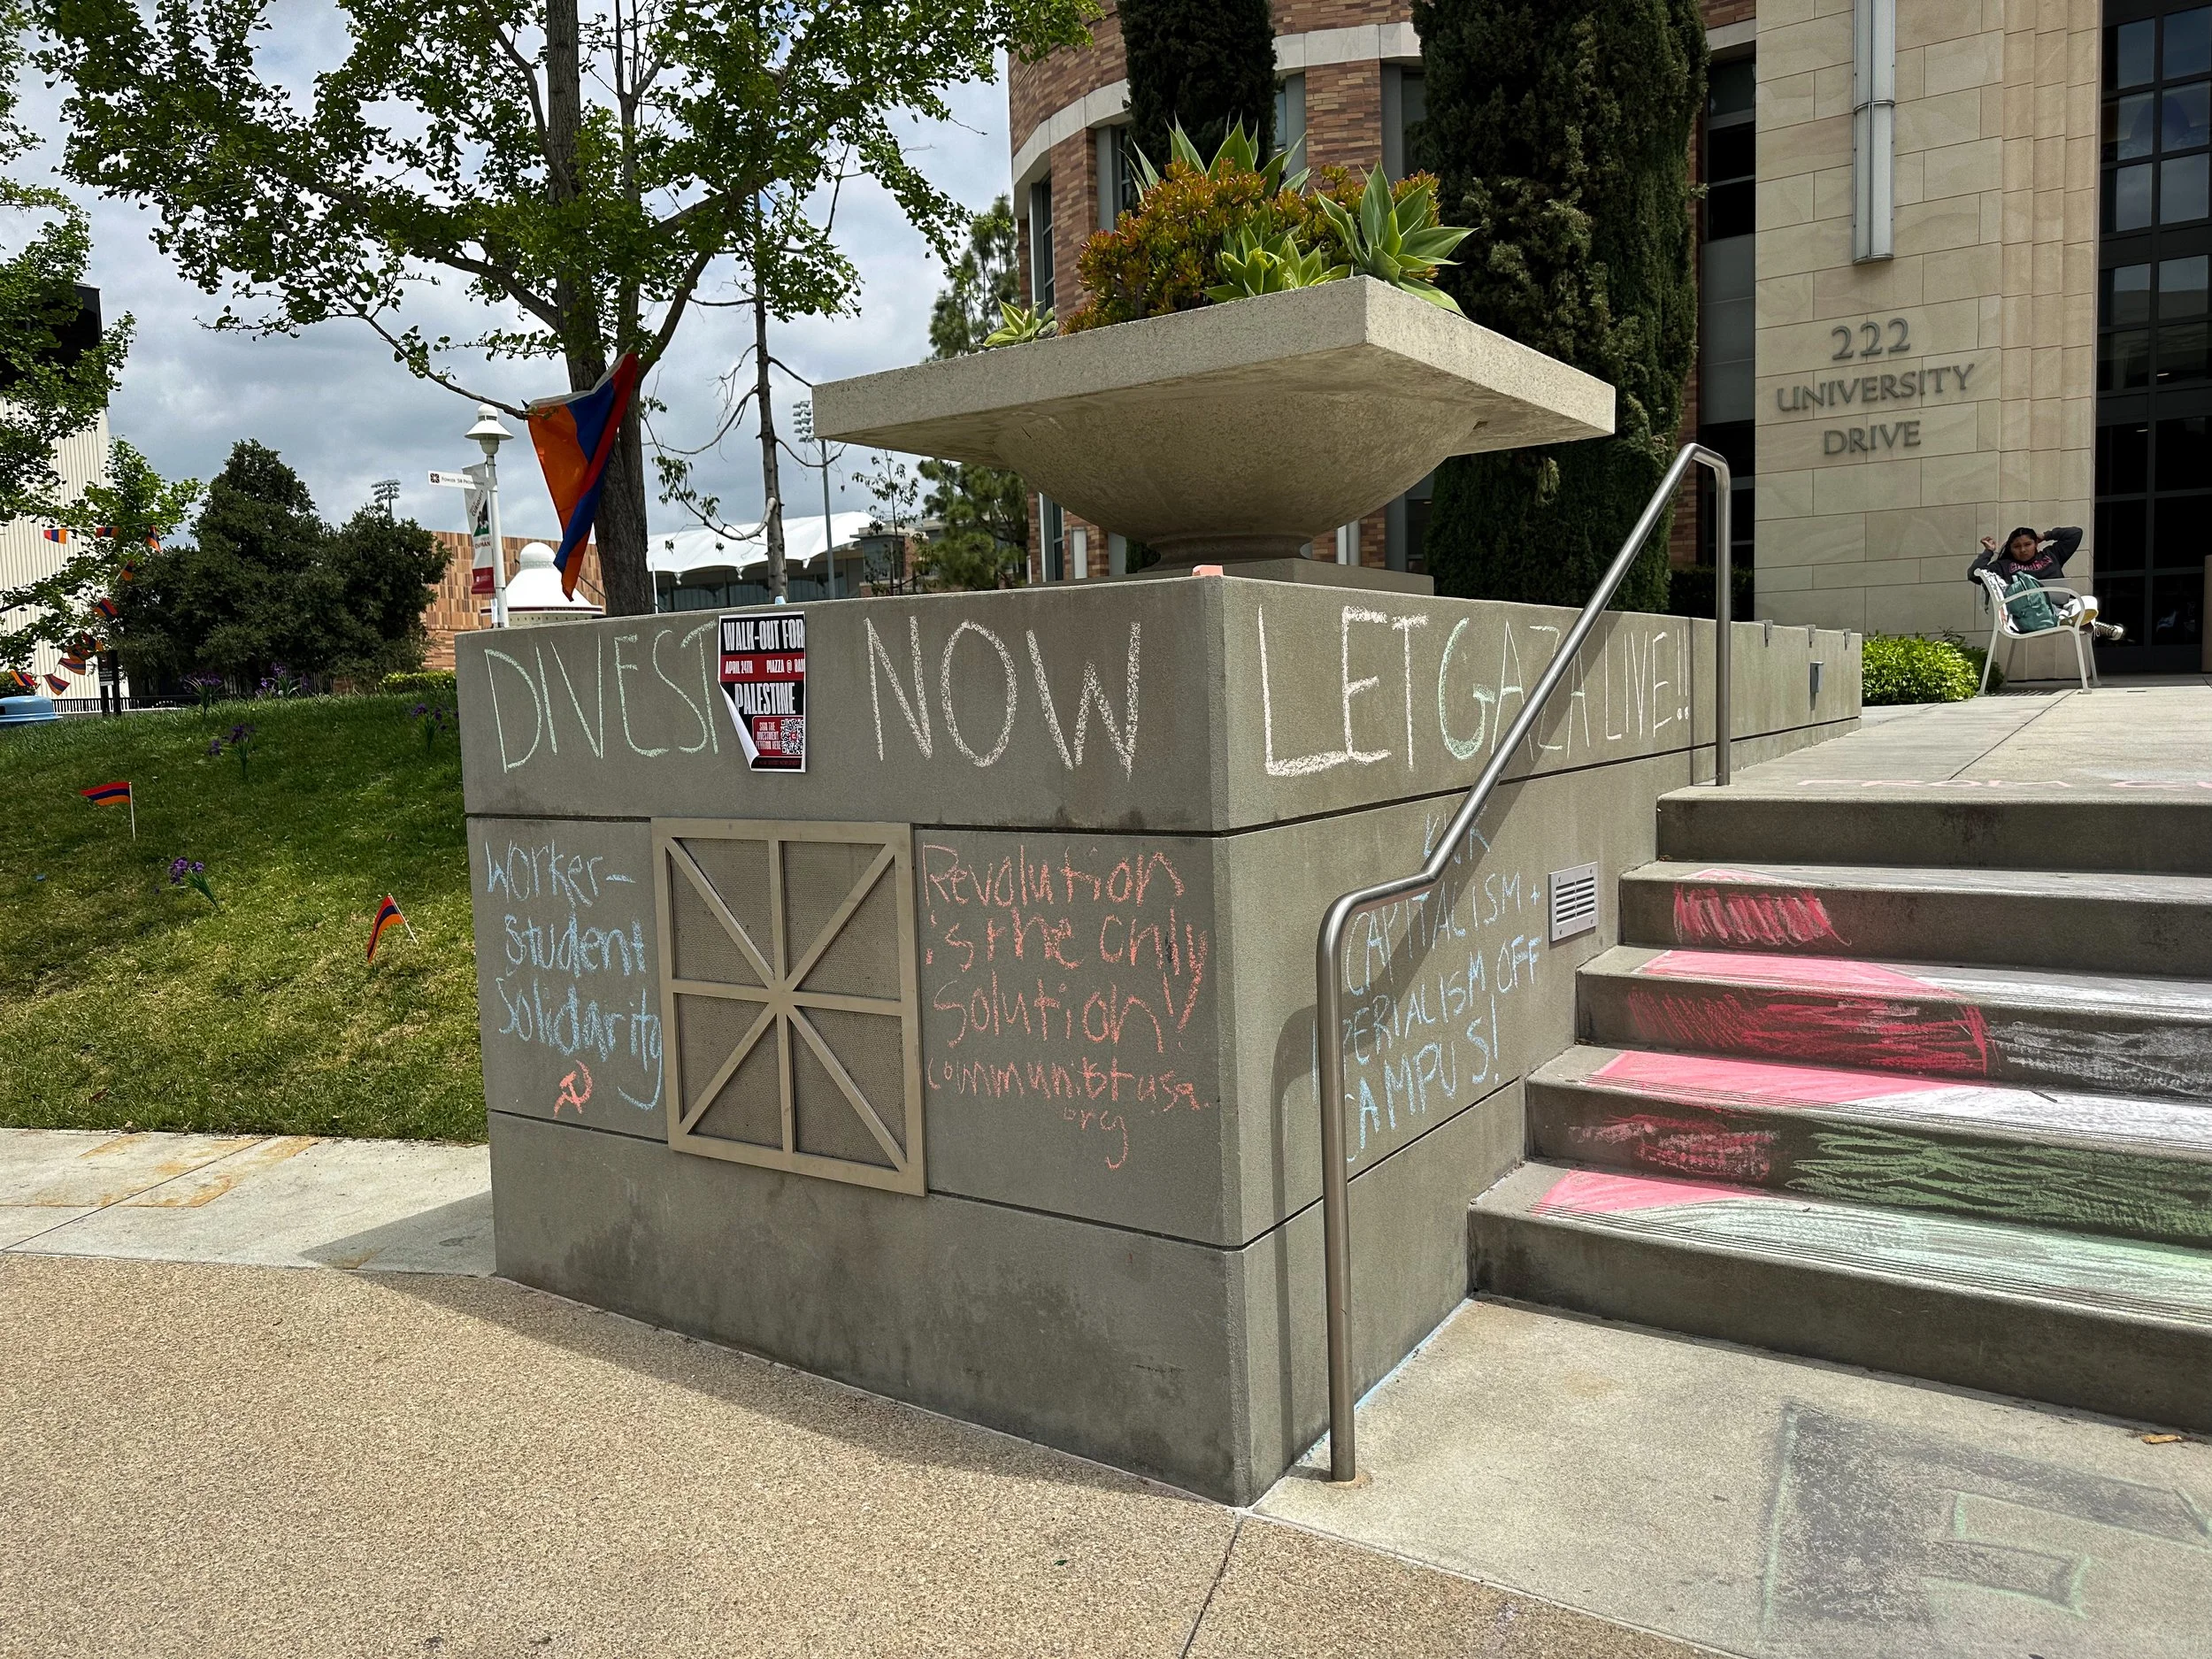 222
UNIVERSITY
DRIVE
DIVEST NOW LET GAZA LIVE!!
WALK-OUT FOR
APRIL 24TH PIAZZA @
PALESTINE
SIGN THE
DIVESTMENT
PETITION HERE
Worker-
Student
Solidarity
Revolution
is the only
solution!
communistusa.
org
CAPITALISM +
IMPERIALISM OFF
CAMPUS!